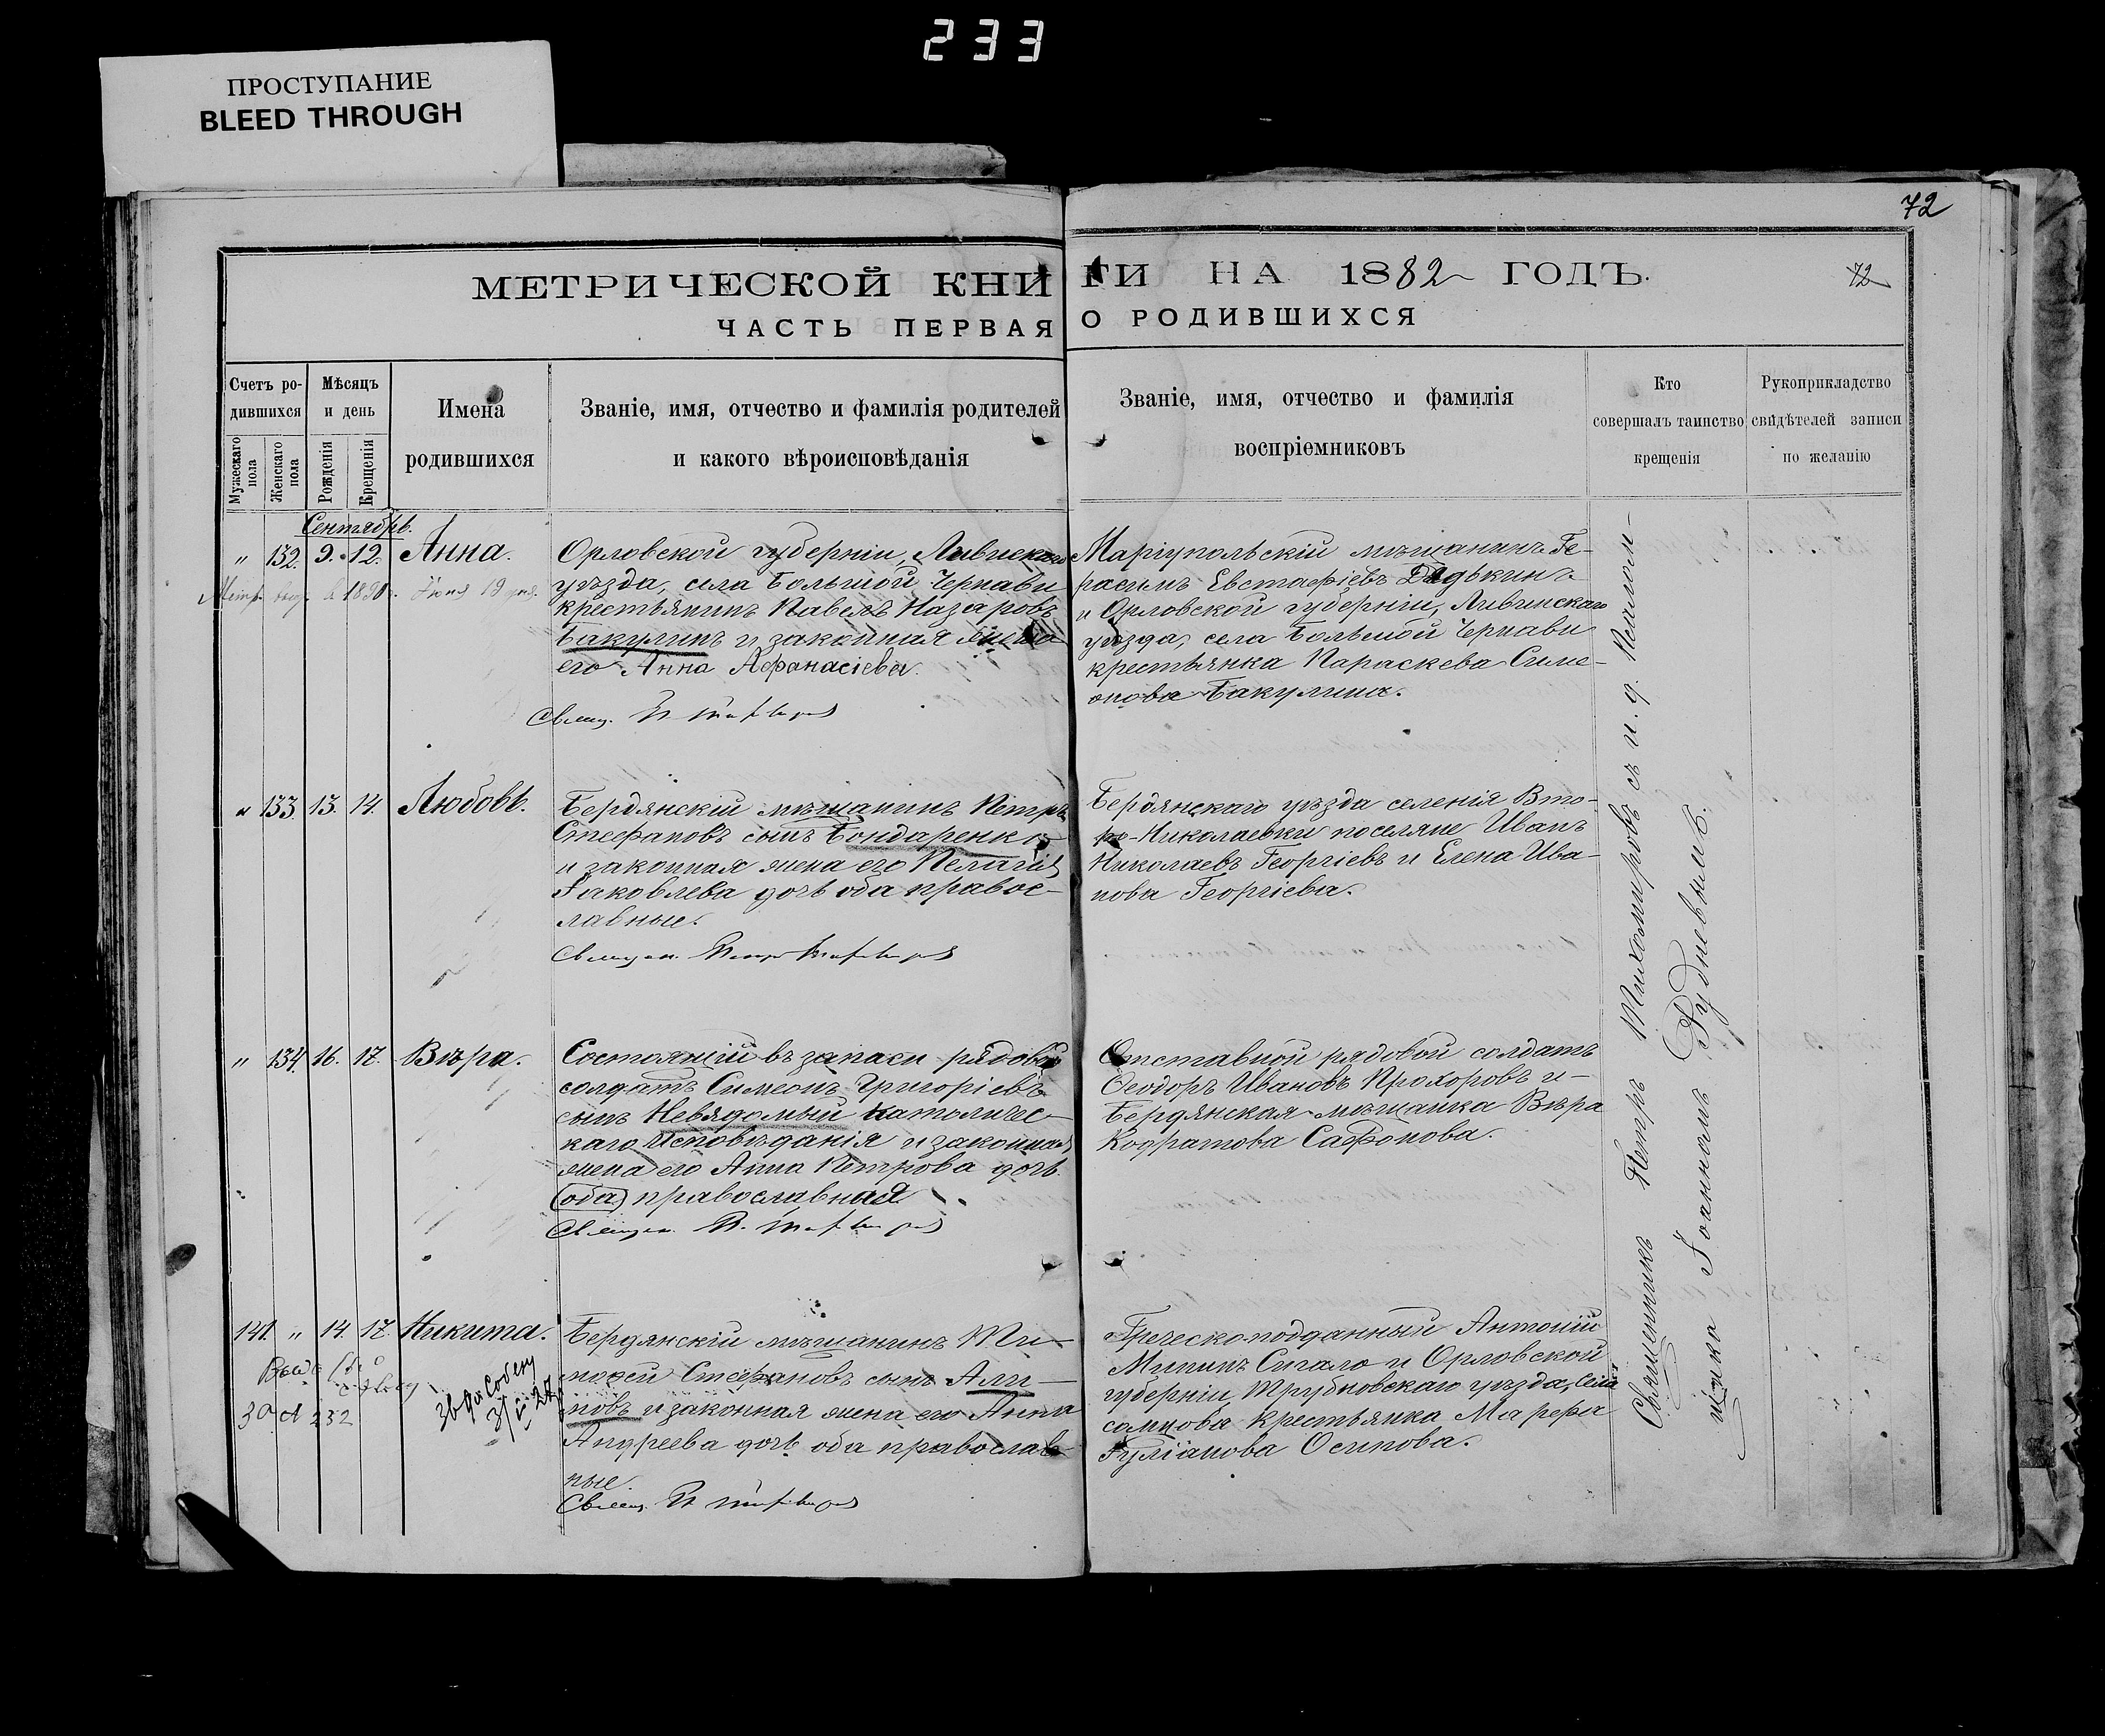 233
ПРОСТУПАНИЕ
BLEED THROUGH
72
МЕТРИЧЕСКОЙ КНИГИ НА 1882 ГОДЪ.
72
ЧАСТЬ ПЕРВАЯ О РОДИВШИХСЯ
Счетъ ро-
дившихся
Мужескаго пола
Женскаго пола
Мѣсяцъ
и день
Рожденія
Крещенія
Имена
родившихся
Званіе, имя, отчество и фамилія родителей
и какого вѣроисповѣданія
Званіе, имя, отчество и фамилія
воспріемниковъ
Кто
совершалъ таинство
крещенія
Рукоприкладство
свидѣтелей записи
по желанію
Сентябрь.
" 132. 9. 12. Анна.
Метр. выд. 1890. Іюня 19 дня.
Орловской губерніи, Ливенскаго
уѣзда, села Большой Чернавы
крестьянинъ Павелъ Назаровъ
Бакулинъ и законная жена
его Анна Афанасіева.
Свящ. П. Тихомировъ
Маріупольскій мѣщанинъ Ге-
расимъ Евстафіевъ Дядькинъ
и Орловской губерніи, Ливенскаго
уѣзда, села Большой Чернавы
крестьянка Параскева Симе-
онова Бакулина.
" 133. 13. 14. Любовь.
Бердянскій мѣщанинъ Петръ
Стефановъ сынъ Бондаренко
и законная жена его Пелагія
Іаковлева дочь оба правос-
лавные.
Священ. Петръ Тихомировъ
Бердянскаго уѣзда селенія Вто-
ро-Николаевки поселяне Иванъ
Николаевъ Георгіевъ и Елена Ива-
нова Георгіева.
" 134. 16. 17. Вѣра.
Состоящій въ запаси рядовой
солдатъ Симеонъ Григоріевъ
сынъ Невядомый католичес-
каго исповѣданія и законная
жена его Анна Петрова дочь
(оба) православная.
Священ. П. Тихомировъ
Отставной рядовой солдатъ
Ѳеодоръ Ивановъ Прохоровъ и
Бердянская мѣщанка Вѣра
Кодратова Сафонова.
141. " 14. 17. Никита.
Бердянскій мѣщанинъ Ти-
моѳей Стефановъ сынъ Али-
повъ и законная жена его Анна
Андреева дочь оба православ-
ные.
Свящ. П. Тихомировъ
Греческо-подданный Антоній
Сигало и Орловской
губерніи Трубчовскаго уѣзда, села
крестьянка Марѳа
Іуліанова Осипова.
232
Священникъ Петръ Тихомировъ съ и. д. Псалом-
щика Іоанномъ Рудневымъ.